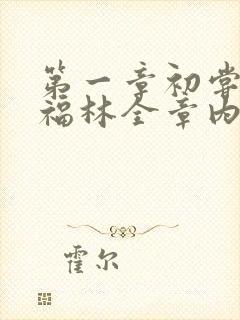 第一章初尝
福林全章内
霍尔